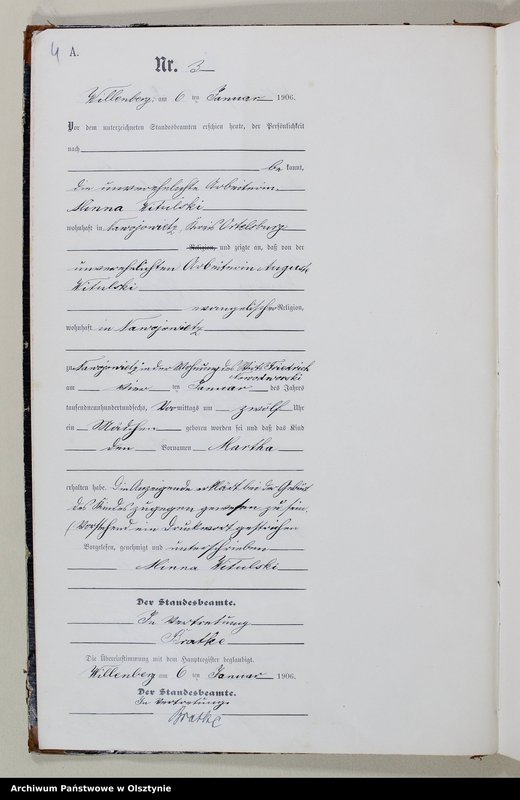 4 A.
Nr. 3
Willenberg, am 6 ten Januar 1906.
Vor dem unterzeichneten Standesbeamten erschien heute, der Persönlichkeit
nach
be kannt,
die unverehelichte Arbeiterin
Minna Witulski
wohnhaft in Nawojowietz Kreis Ortelsburg
Religion, und zeigte an, daß von der
unverehelichten Arbeiterin Auguste
Witulski
evangelischer Religion,
wohnhaft in Nawojowietz
zu Nawojowietz in der Wohnung des Wirts Friedrich
Nowodworski
am vier ten Januar des Jahres
tausendneunhundertundsechs, Vormittags um zwölf Uhr
ein Mädchen geboren worden sei und daß das Kind
den Vornamen Martha
erhalten habe. Die Anzeigende erklärt bei der Geburt
des Kindes zugegen gewesen zu sein.
(Vorstehend ein Druckwort gestrichen
Vorgelesen, genehmigt und unterschrieben
Minna Witulski
Der Standesbeamte.
In Vertretung
Bratke
Die Übereinstimmung mit dem Hauptregister beglaubigt.
Willenberg am 6 ten Januar 1906.
Der Standesbeamte.
In Vertretung
Bratke
Archiwum Państwowe w Olsztynie